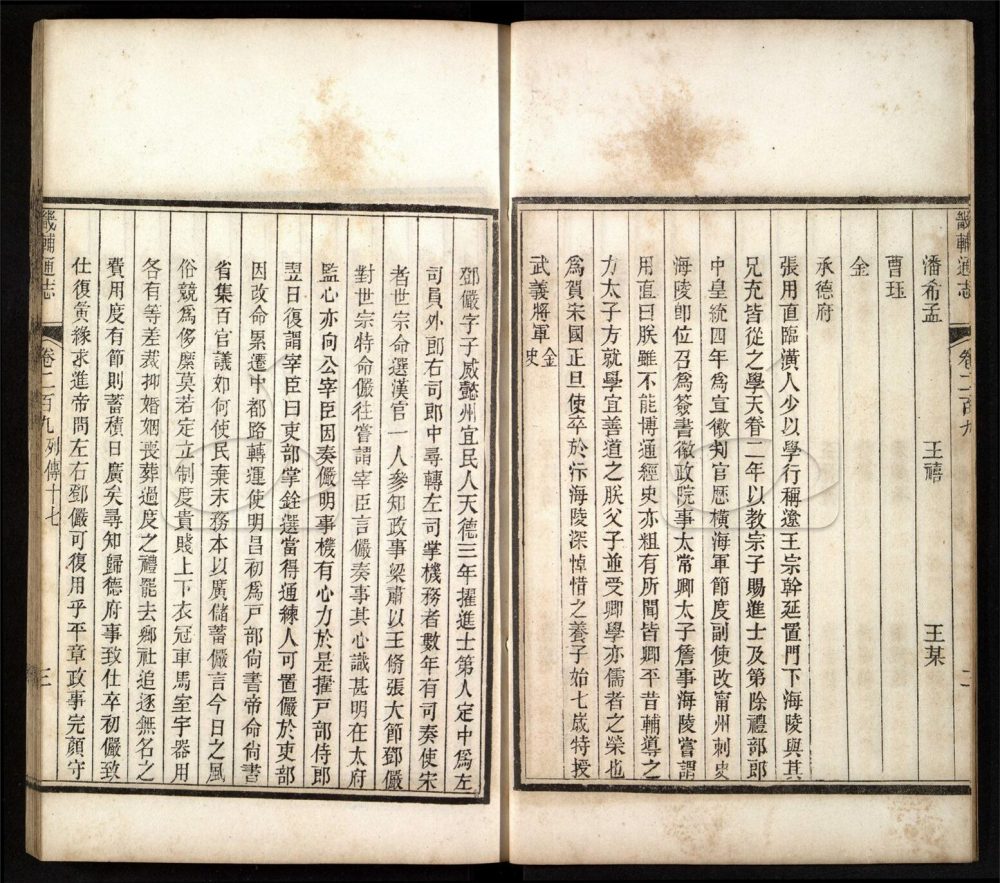 畿輔通志 卷二百九 二
潘希孟 王禧 王某
曹珏
金
承德府
張用直臨潢人少以學行稱遼王宗幹延置門下海陵與其
兄充皆從之學天眷二年以教宗子賜進士及第除禮部郎
中皇統四年爲宣徽判官歷橫海軍節度副使改甯州刺史
海陵卽位召爲簽書徽政院事太常卿太子詹事海陵嘗謂
用直曰朕雖不能博通經史亦粗有所聞皆卿平昔輔導之
力太子方就學宜善道之朕父子並受卿學亦儒者之榮也
爲賀宋國正旦使卒於汴海陵深悼惜之養子始七歲特授
武義將軍金史
鄧儼字子威懿州宜民人天德三年擢進士第人定中爲左
司員外郎右司郎中尋轉左司掌機務者數年有司奏使宋
者世宗命選漢官一人參知政事梁肅以王翛張大節鄧儼
對世宗特命儼往嘗謂宰臣言儼奏事其心識甚明在太府
監心亦向公宰臣因奏儼明事機有心力於是擢戸部侍郎
翌日復謂宰臣曰吏部掌銓選當得通練人可置儼於吏部
因改命累遷中都路轉運使明昌初爲戸部尚書帝命尚書
省集百官議如何使民棄末務本以廣儲蓄儼言今日之風
俗競爲侈靡莫若定立制度貴賤上下衣冠車馬室宇器用
各有等差裁抑婚姻喪葬過度之禮罷去鄉社追逐無名之
費用度有節則蓄積日廣矣尋知歸德府事致仕卒初儼致
仕復夤緣求進帝問左右鄧儼可復用乎平章政事完顏守
畿輔通志 卷二百九 列傳十七 三